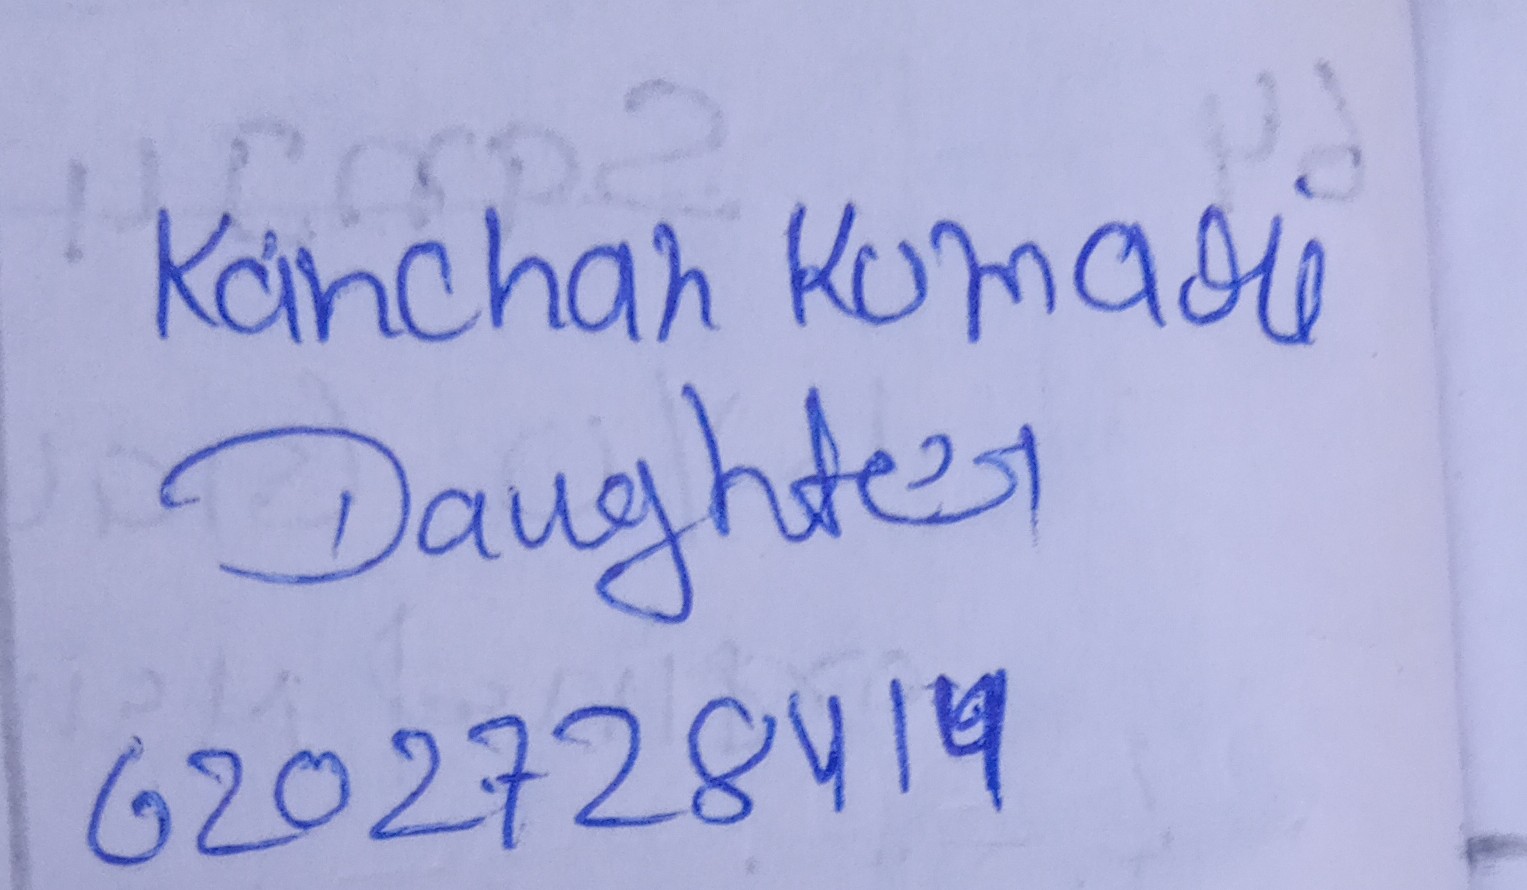 Kanchan Kumari
Daughter
6202728414